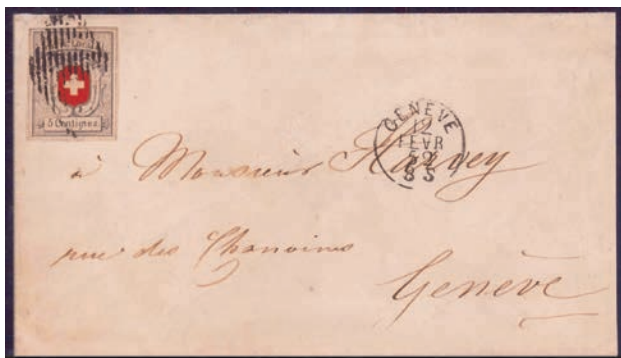 5 Centimes
GENÈVE
12
FEVR
52
S 5
à Monsieur Harvey
rue des Chanoines
Genève